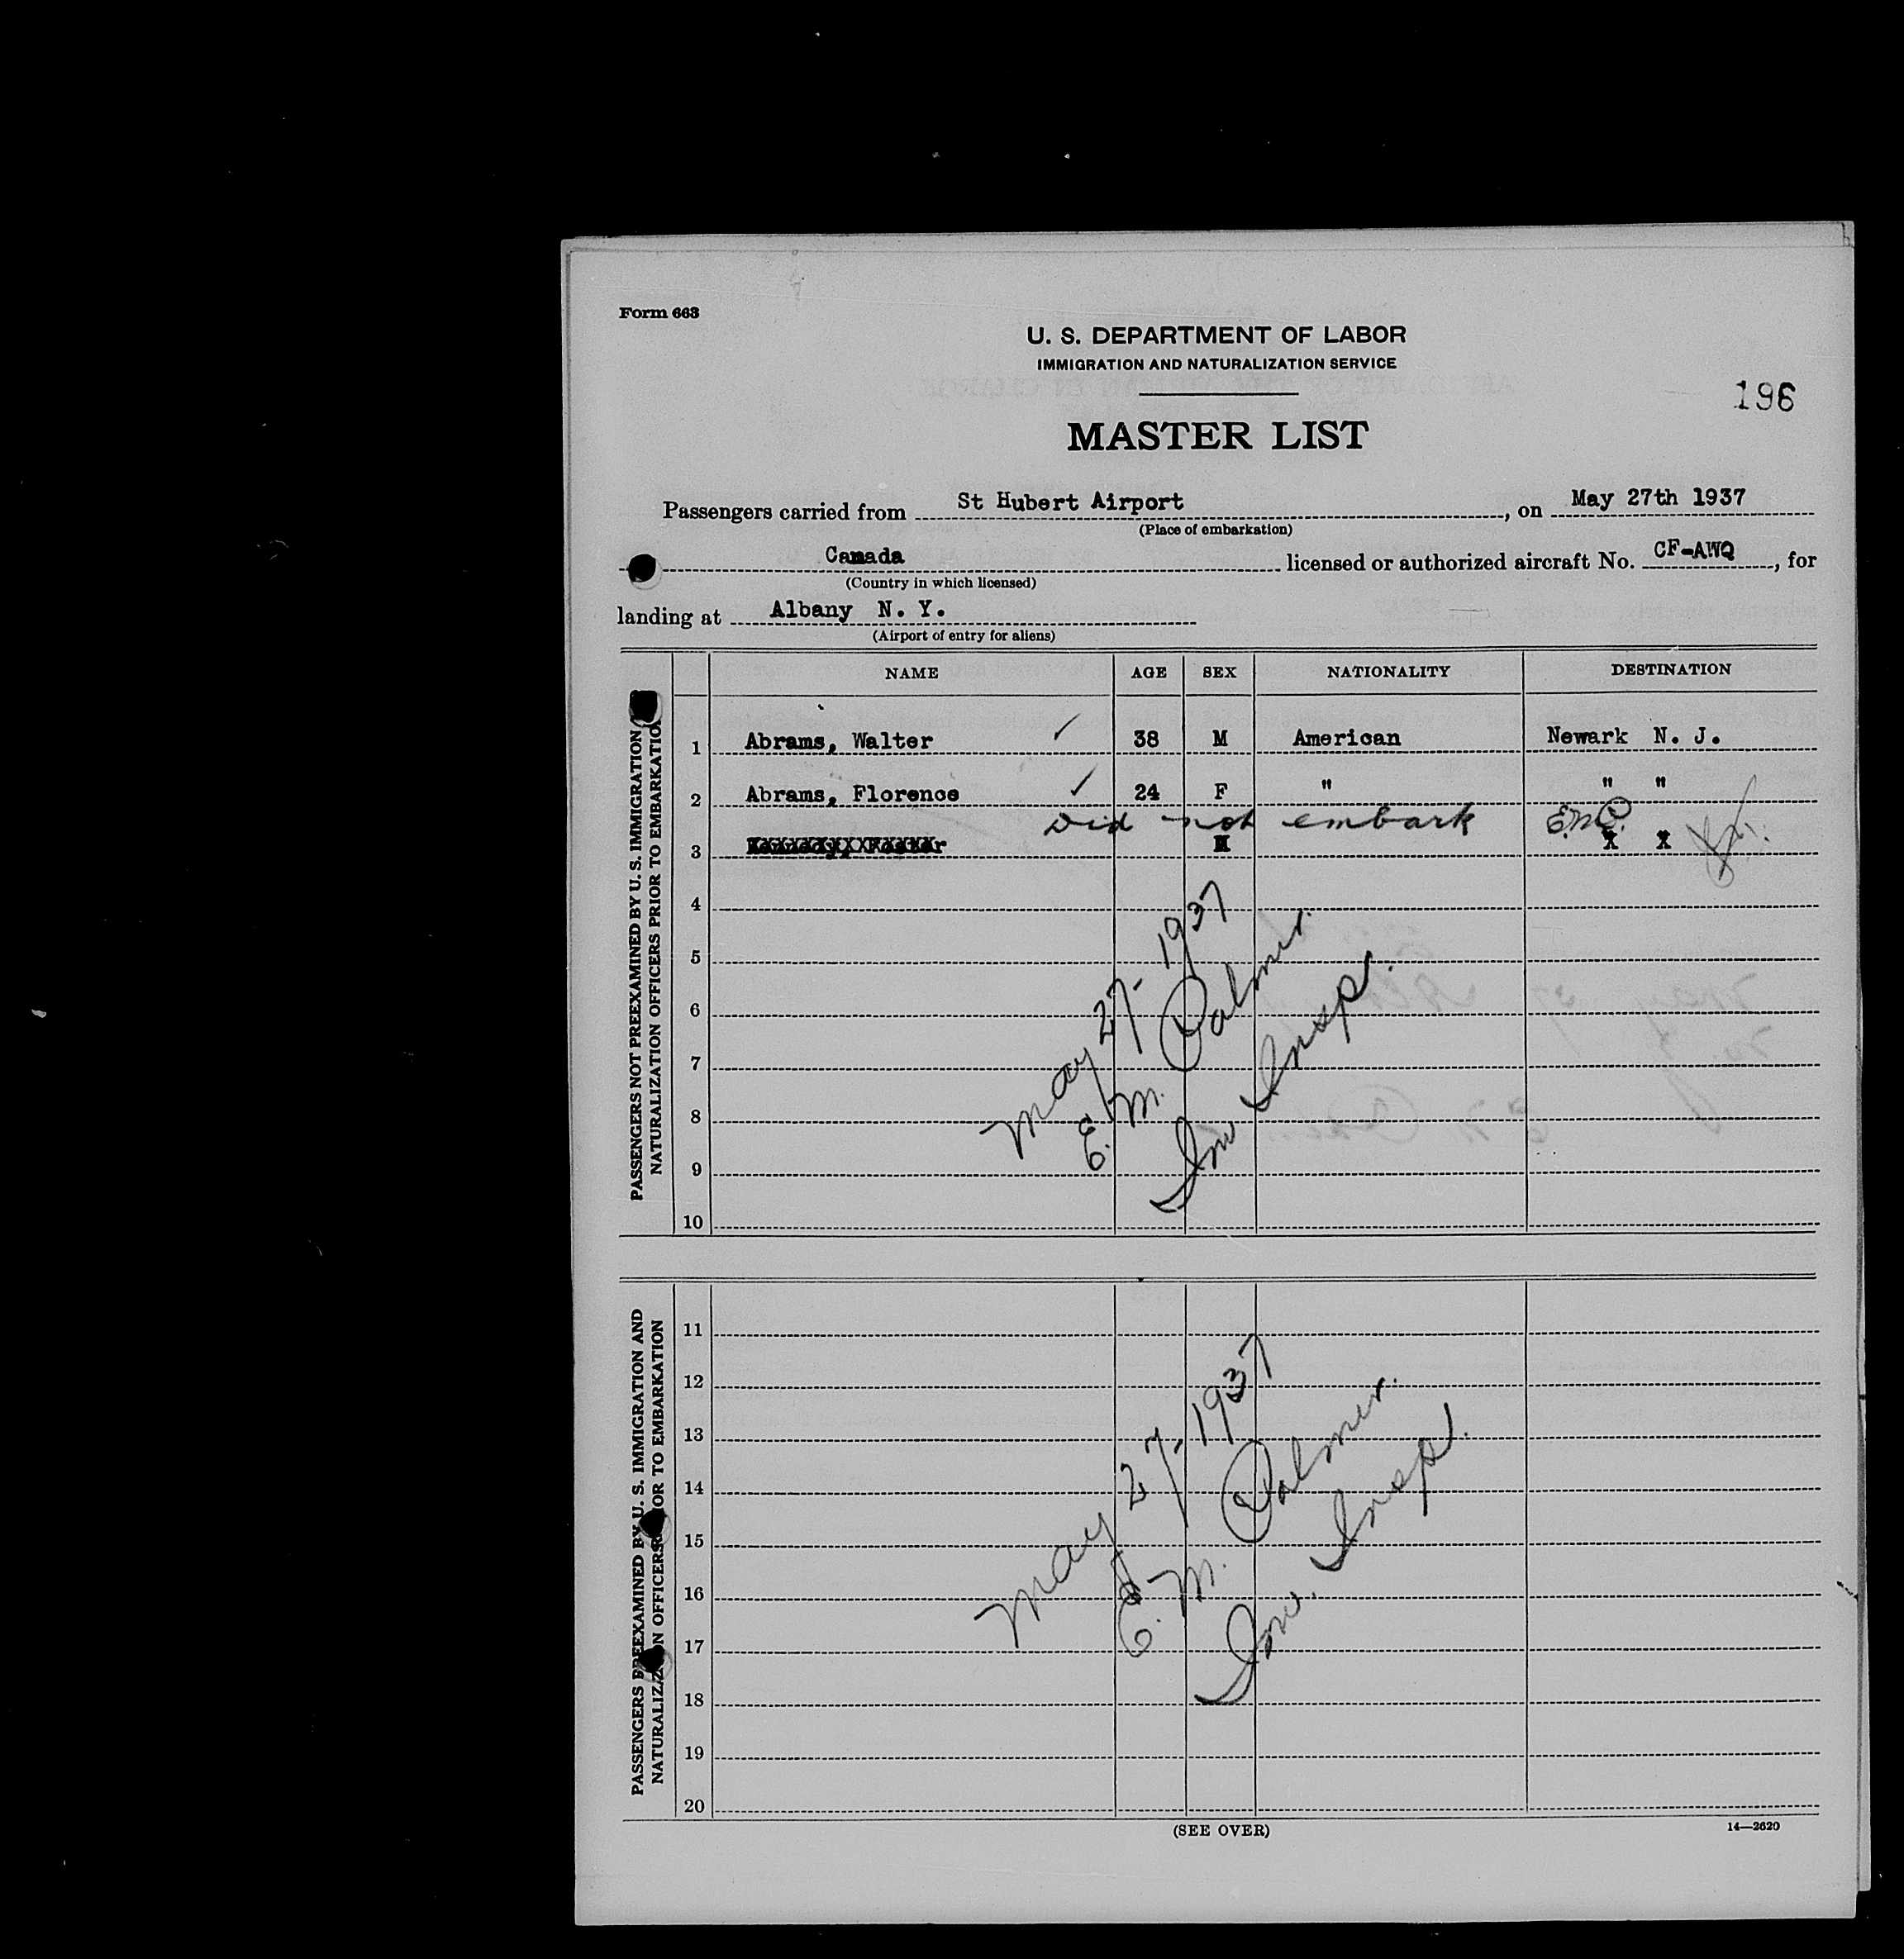 Form 663
U. S. DEPARTMENT OF LABOR
IMMIGRATION AND NATURALIZATION SERVICE
196
MASTER LIST
Passengers carried from St Hubert Airport, on May 27th 1937
(Place of embarkation)
Canada licensed or authorized aircraft No. CF-AWQ, for
(Country in which licensed)
landing at Albany N. Y.
(Airport of entry for aliens)
NAME AGE SEX NATIONALITY DESTINATION
PASSENGERS NOT PREEXAMINED BY U. S. IMMIGRATION
NATURALIZATION OFFICERS PRIOR TO EMBARKATIO
1 Abrams, Walter ✓ 38 M American Newark N. J.
2 Abrams, Florence ✓ 24 F " " "
Did not embark
3
4
5
6
7
8
9
10
May 27-1937
E. M. Palmer.
Im Insp.
PASSENGERS PREEXAMINED BY U. S. IMMIGRATION AND
NATURALIZATION OFFICERS PRIOR TO EMBARKATION
11
12
13
14
15
16
17
18
19
20
May 27-1937
E. M. Palmer.
Im. Insp.
(SEE OVER)
14—2620